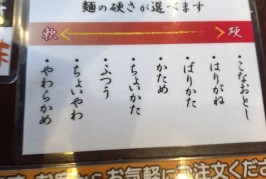 麺の硬さが選べます
軟
硬
こなおとし
はりがね
ばりかた
かため
ちょいかた
ふつう
ちょいやわ
やわらかめ
お気軽にご注文くださ